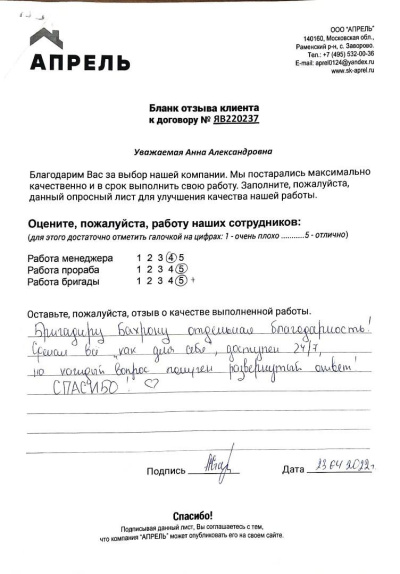 АПРЕЛЬ
ООО "АПРЕЛЬ"
140160, Московская обл.,
Раменский р-н, с. Заворово.
Тел.: +7 (495) 532-00-36
E-mail: aprel0124@yandex.ru
www.sk-aprel.ru
Бланк отзыва клиента
к договору № ЯВ220237
Уважаемая Анна Александровна
Благодарим Вас за выбор нашей компании. Мы постарались максимально
качественно и в срок выполнить свою работу. Заполните, пожалуйста,
данный опросный лист для улучшения качества нашей работы.
Оцените, пожалуйста, работу наших сотрудников:
(для этого достаточно отметить галочкой на цифрах: 1 - очень плохо ............5 - отлично)
Работа менеджера 1 2 3 4 5
Работа прораба 1 2 3 4 5
Работа бригады 1 2 3 4 5 +
Оставьте, пожалуйста, отзыв о качестве выполненной работы.
Бригадиру Бахрону отдельная благодарность!
Сделал всё "как для себя", доступен 24/7,
на каждый вопрос получен развернутый ответ!
СПАСИБО! ♡
Подпись Дата 23 04 2022г.
Спасибо!
Подписывая данный лист, Вы соглашаетесь с тем,
что компания "АПРЕЛЬ" может опубликовать его на своем сайте.